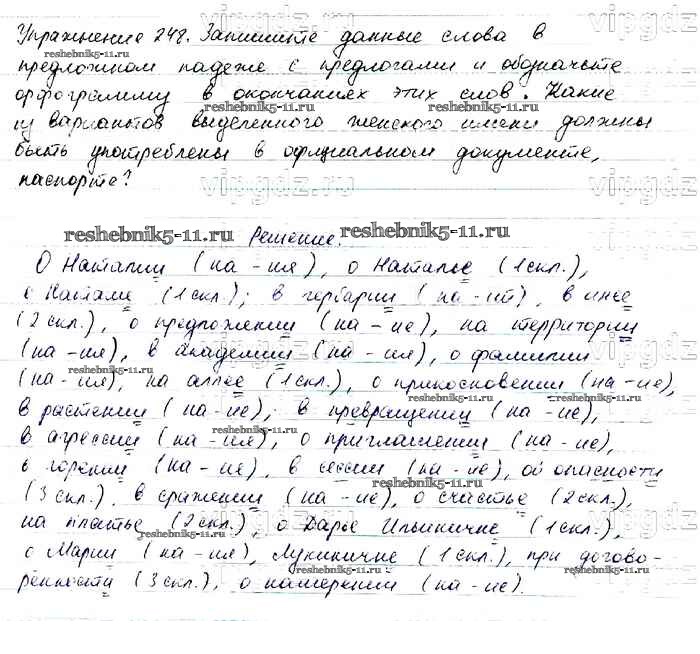 Упражнение 248. Запишите данные слова в
предложном падеже с предлогами и обозначьте
орфограмму в окончаниях этих слов. Какие
из вариантов выделенного женского имени должны
быть употреблены в официальном документе,
паспорте?
reshebnik5-11.ru Решение. reshebnik5-11.ru
О Наталии (на - ия), о Наталье (1 скл.),
о Натали (1 скл.); в гербарии (на - ий), в инее
(2 скл.), о предложении (на - ие), на территории
(на - ия), в академии (на - ия), о фамилии
(на - ия), на аллее (1 скл.), о прикосновении (на - ие),
в растении (на - ие), в превращении (на - ие),
в агрессии (на - ия), о приглашении (на - ие),
о горении (на - ие), в сессии (на - ие), об опасности
(3 скл.), в сражении (на - ие), о счастье (2 скл.),
на платье (2 скл.), о Дарье Ильиничне (1 скл.),
о Марии (на - ия), Лукиничне (1 скл.), при догово-
ренности (3 скл.), о намерении (на - ие).